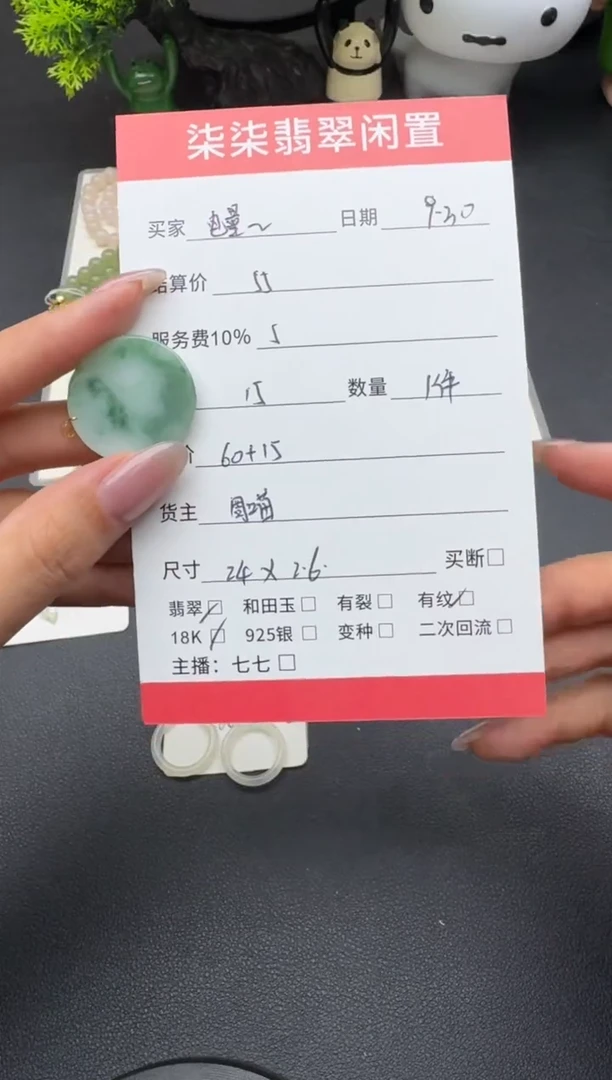 柒柒翡翠闲置
买家 电量~ 日期 9-30
结算价 55
服务费10% 5
15 数量 1件
价 60+15
货主 周喵
尺寸 24 × 2.6
翡翠 和田玉 有裂 有纹 买断
18K 925银 变种 二次回流
主播：七七